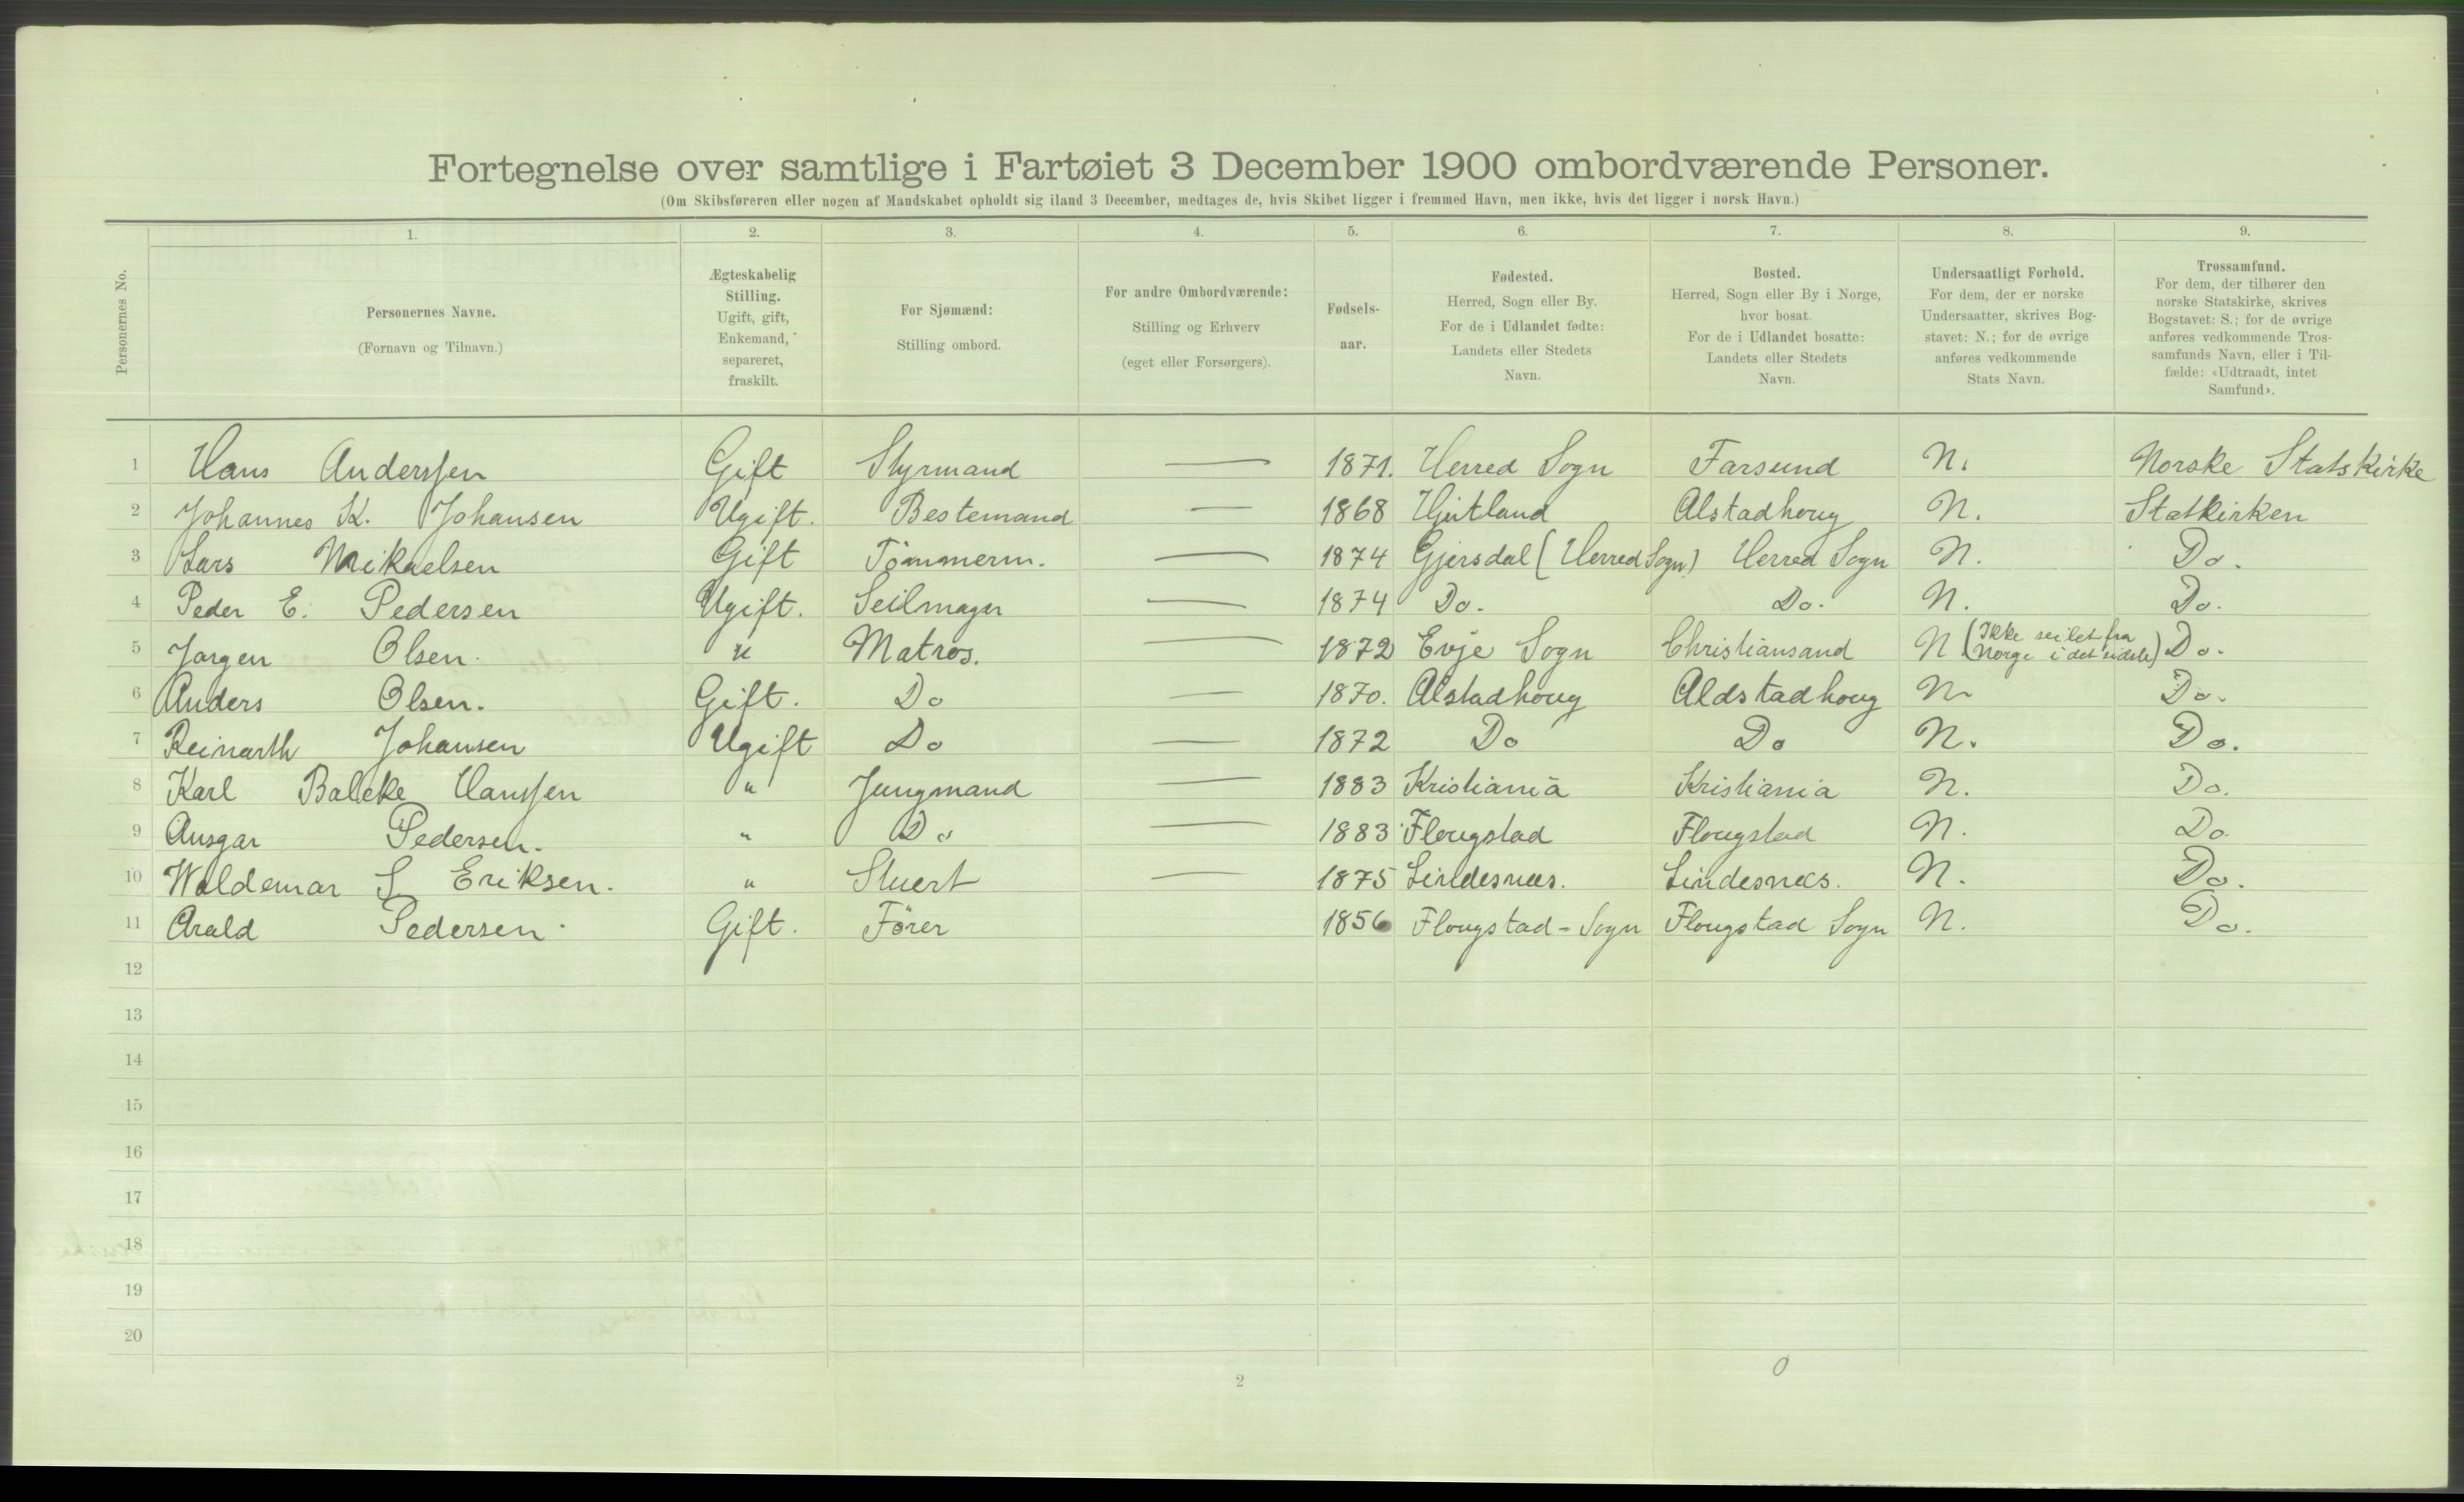 Fortegnelse over samtlige i Fartøiet 3 December 1900 ombordværende Personer.
(Om Skibsføreren eller nogen af Mandskabet opholdt sig iland 3 December, medtages de, hvis Skibet ligger i fremmed Havn, men ikke, hvis det ligger i norsk Havn.)
1. 2. 3. 4. 5. 6. 7. 8. 9.
Personernes No.
Personernes Navne.
(Fornavn og Tilnavn.)
Ægteskabelig
Stilling.
Ugift, gift,
Enkemand,
separeret,
fraskilt.
For Sjømænd:
Stilling ombord.
For andre Ombordværende:
Stilling og Erhverv
(eget eller Forsørgers).
Fødsels-
aar.
Fødested.
Herred, Sogn eller By.
For de i Udlandet fødte:
Landets eller Stedets
Navn.
Bosted.
Herred, Sogn eller By i Norge,
hvor bosat.
For de i Udlandet bosatte:
Landets eller Stedets
Navn.
Undersaatligt Forhold.
For dem, der er norske
Undersaatter, skrives Bog-
stavet: N.; for de øvrige
anføres vedkommende
Stats Navn.
Trossamfund.
For dem, der tilhører den
norske Statskirke, skrives
Bogstavet: S.; for de øvrige
anføres vedkommende Tros-
samfunds Navn, eller i Til-
fælde: «Udtraadt, intet
Samfund».
1 Hans Anderssen Gift Styrmand — 1871. Herred Sogn Farsund N. Norske Statskirke
2 Johannes K. Johansen Ugift. Bestemand — 1868 Hitland Alstadhoug N. Statkirken
3 Lars Mikaelsen Gift Tömmerm. — 1874 Gjersdal (Herred Sogn) Herred Sogn N. Do.
4 Peder E. Pedersen Ugift. Seilmager — 1874 Do. Do. N. Do.
5 Jørgen Olsen. " Matros. — 1872 Evje Sogn Christiansand N (Ikke seilet fra Norge i det sidste) Do.
6 Anders Olsen. Gift. Do — 1870. Alstadhoug Aldstadhoug N Do.
7 Reinarth Johansen Ugift Do — 1872 Do Do N. Do.
8 Karl Balcke Hanssen " Jungmand — 1883 Kristiania Kristiania N. Do.
9 Ansgar Pedersen. " Do — 1883 Flougstad Flougstad N. Do.
10 Waldemar S Eriksen. " Stuert — 1875 Lindesnæs. Lindesnæs. N. Do.
11 Arald Pedersen. Gift. Förer 1856 Flougstad-Sogn Flougstad Sogn N. Do.
12
13
14
15
16
17
18
19
20
2
0